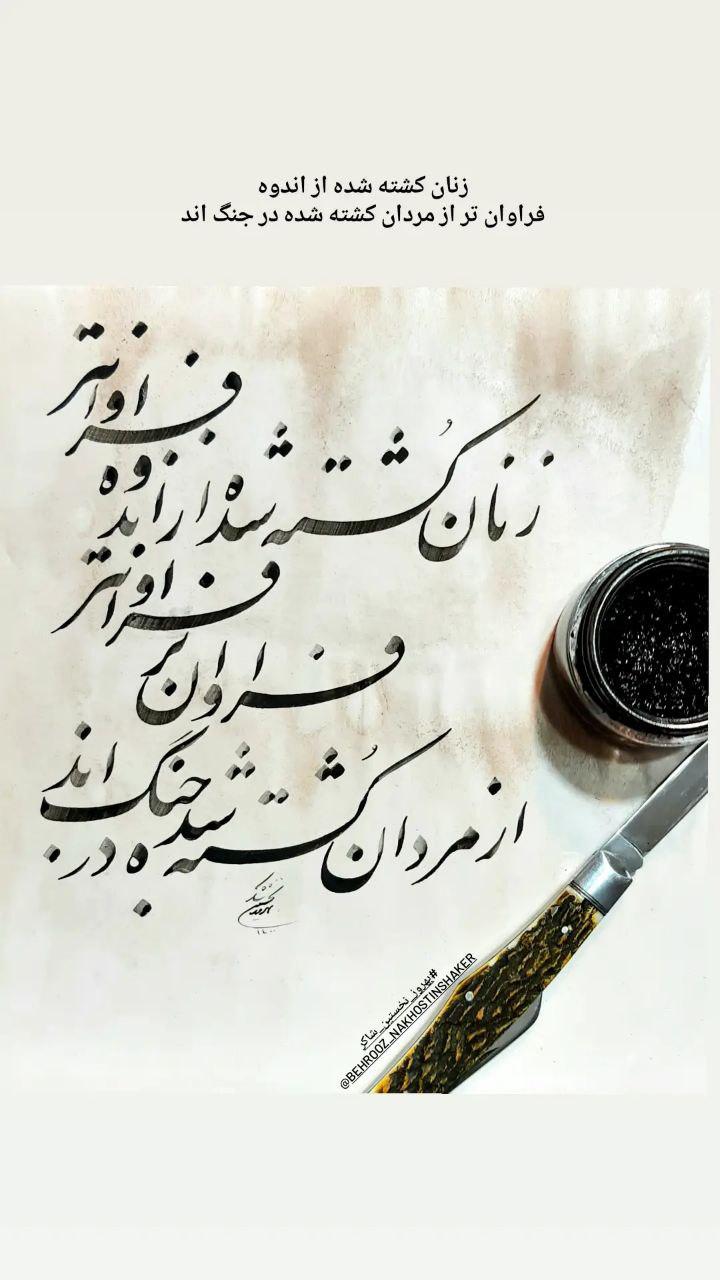 زنان کشته شده از اندوه
فراوان تر از مردان کشته شده در جنگ اند
فراوانتر
زنان کُشته شده از اندوه
فراوانتر
فراوان تر
از مردان کُشته شده در جنگ اند
۱۴۰۰
#بهروز_نخستین_شاکر
@BEHROOZ_NAKHOSTINSHAKER